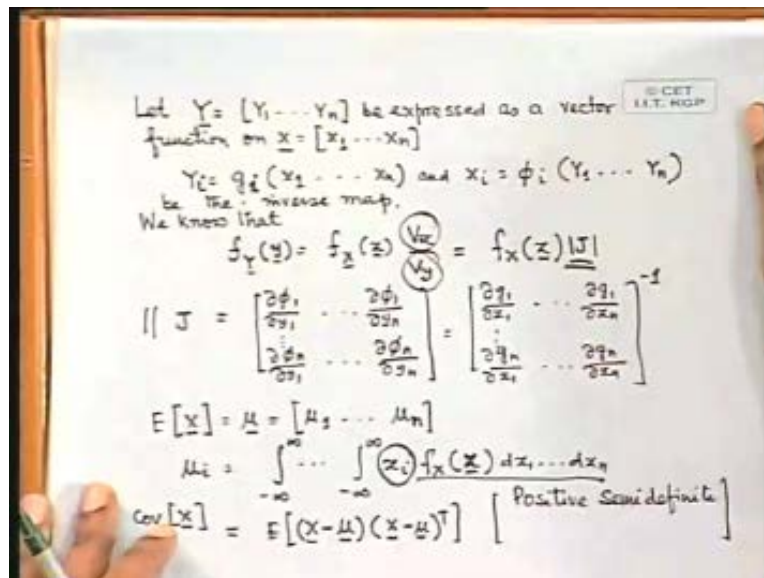 Let Y = [Y₁ --- Yₙ] be expressed as a vector
© CET
I.I.T. KGP
function on x = [x₁ ---- xₙ]
Yᵢ = gᵢ (x₁ ---- xₙ) and xᵢ = ϕᵢ (Y₁ --- Yₙ)
be the inverse map.
We know that
f_Y(y) = f_X(x) Vx/Vy = f_X(x) |J|
|| J = [∂ϕ₁/∂y₁ ... ∂ϕ₁/∂yₙ ⋮ ∂ϕₙ/∂y₁ ... ∂ϕₙ/∂yₙ] = [∂g₁/∂x₁ ... ∂g₁/∂xₙ ⋮ ∂gₙ/∂x₁ ... ∂gₙ/∂xₙ]⁻¹
E[x] = μ = [μ₁ --- μₙ]
μᵢ = ∫_{-∞}^{∞} ... ∫_{-∞}^{∞} xᵢ f_X(x) dx₁ .... dxₙ
Cov[x] = E[(x-μ)(x-μ)ᵀ] [Positive Semidefinite]